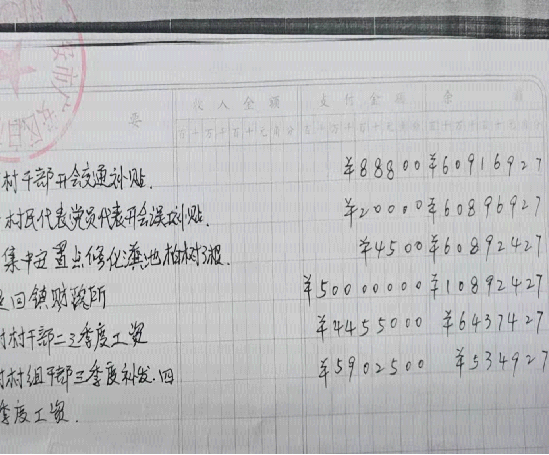 要 收入金额 支付金额 余 额
百十万千百十元角分 百十万千百十元角分 百十万千百十元角分
村干部开会交通补贴. ¥88800 ¥60916927
村民代表党员代表开会误工补贴. ¥200000 ¥60896927
集中安置点修化 ¥4500 ¥60892427
回镇财政所 ¥50000000 ¥10892427
村干部二三季度工资 ¥4455000 ¥6437427
村组干部三季度补发.四 ¥5902500 ¥534927
季度工资.